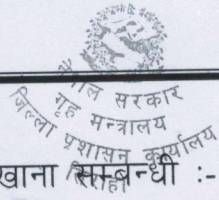 नेपाल सरकार
गृह मन्त्रालय
जिल्ला प्रशासन कार्यालय
सिराहा
खाना सम्बन्धी :-